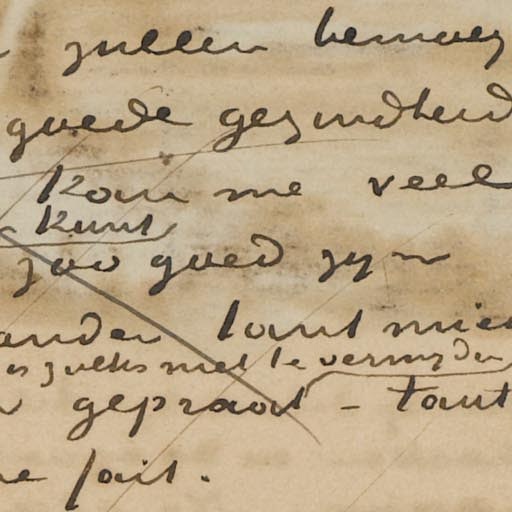 zullen bemoey
goede gezondheid
Kan me veel
Kunt
zoo goed zyn
ander tant mieu
is zulks niet te vermyden
gepraat - tant
fait.